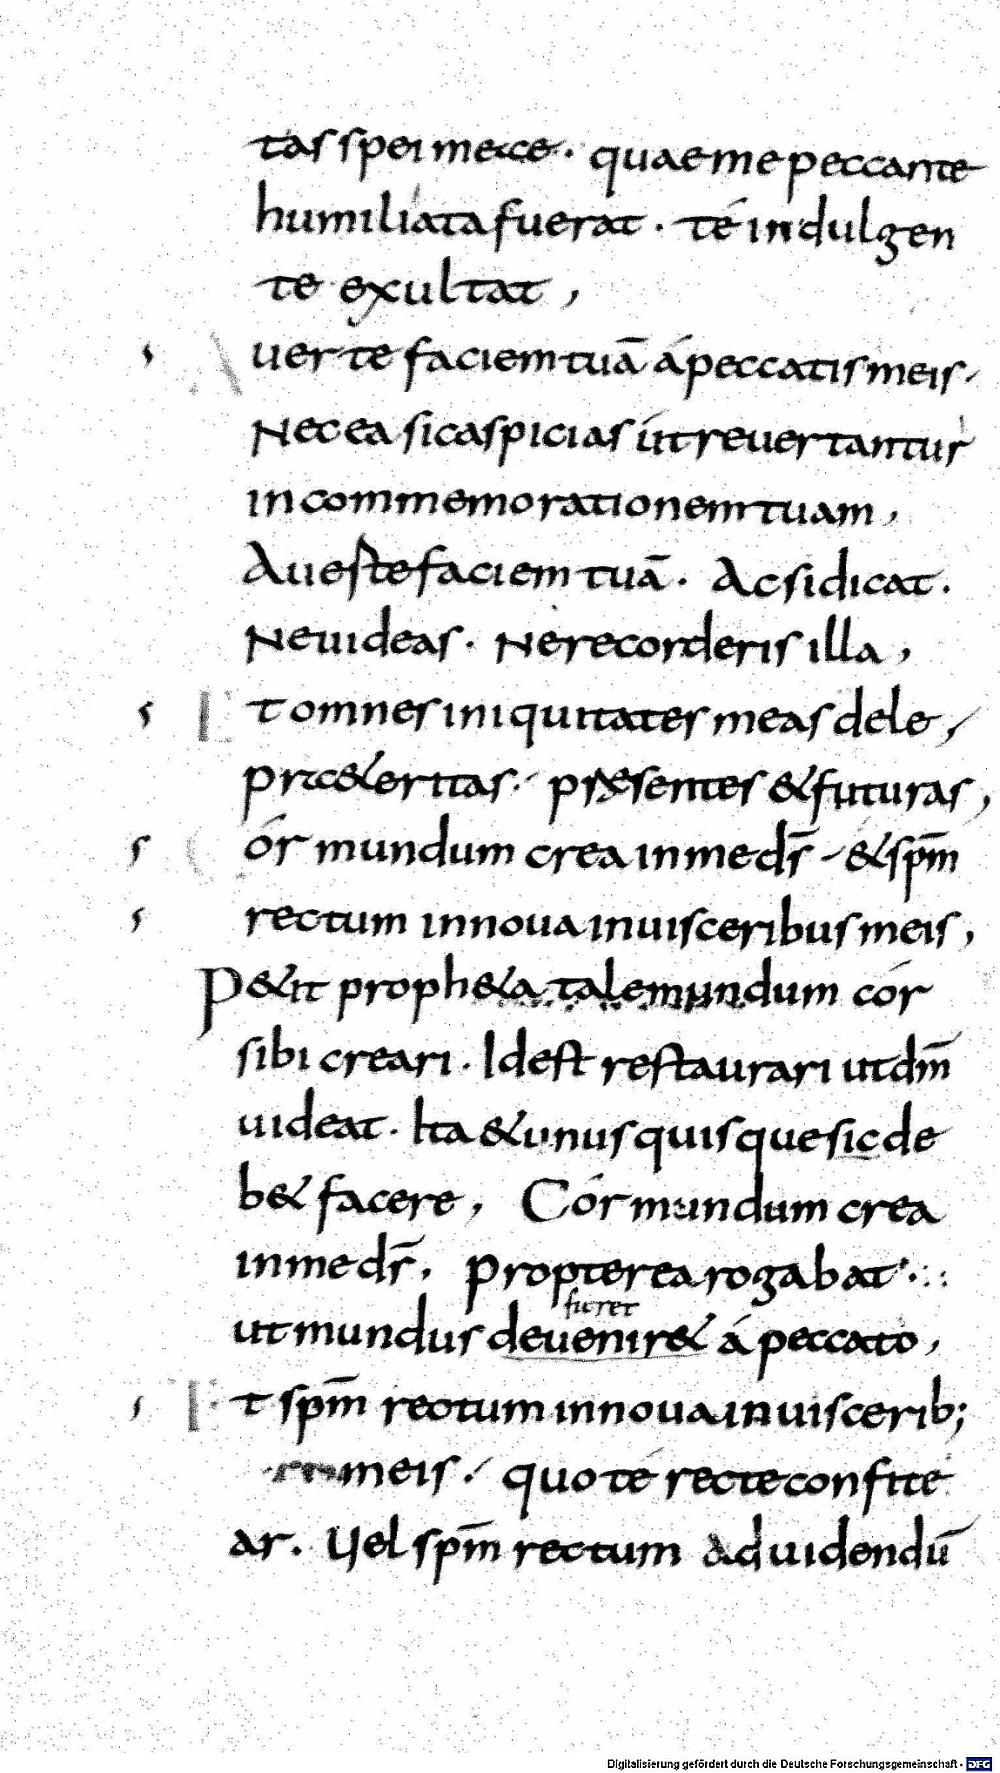 tas spei meae · quae me peccante
humiliata fuerat · té indulgen
te exultat,
Auerte faciem tuā á peccatis meis ·
Nec ea sic aspicias út reuertantur
in commemorationem tuam,
Auerte faciem tuā · Ac si dicat ·
Ne uideas · Ne recorderis illa,
Et omnes iniquitates meas dele,
praeteritas · praesentes & futuras,
Cór mundum crea in me dr̄ & spm̄
rectum innoua in uisceribus meis,
P&it proph&a tale mundum cór
sibi creari · Id est restaurari ut dm̄
uideat · Ita & unusquisque sic de
b& facere, Cór mundum crea
in me dr̄, propterea rogabat ·
fieret
ut mundus deuenir& á peccato,
Et spm̄ rectum innoua in uiscerib;
meis · quo té recte confite
ar · Uel spm̄ rectum ad uidendū
Digitalisierung gefördert durch die Deutsche Forschungsgemeinschaft - DFG